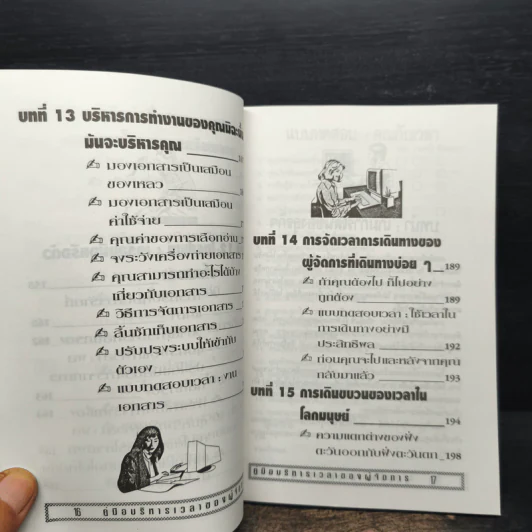 บทที่ 13 บริหารการทำงานของคุณมิฉะนั้น
มันจะบริหารคุณ
มองเอกสารเป็นเสมือน
ของเหลว
มองเอกสารเป็นเสมือน
ค่าใช้จ่าย
คุณค่าของการเลือกอ่าน
จงระวังเครื่องถ่ายเอกสาร
คุณสามารถทำอะไรได้บ้าง
เกี่ยวกับเอกสาร
วิธีการจัดการเอกสาร
ลิ้นชักเก็บเอกสาร
ปรับปรุงระบบให้เข้ากับ
ตัวเอง
แบบทดสอบเวลา : งาน
เอกสาร
16 คู่มือบริหารเวลาของผู้จัดการ
บทที่ 14 การจัดเวลาการเดินทางของ
ผู้จัดการที่เดินทางบ่อย ๆ 189
ถ้าคุณต้องไป ก็ไปอย่าง
ถูกต้อง 189
แบบทดสอบเวลา : ใช้เวลาใน
การเดินทางอย่างมี
ประสิทธิผล 192
ก่อนคุณจะไปและหลังจากคุณ
กลับมาแล้ว 193
บทที่ 15 การเดินขบวนของเวลาใน
โลกมนุษย์ 194
ความแตกต่างของฝั่ง
ตะวันออกกับฝั่งตะวันตก 198
คู่มือบริหารเวลาของผู้จัดการ 17